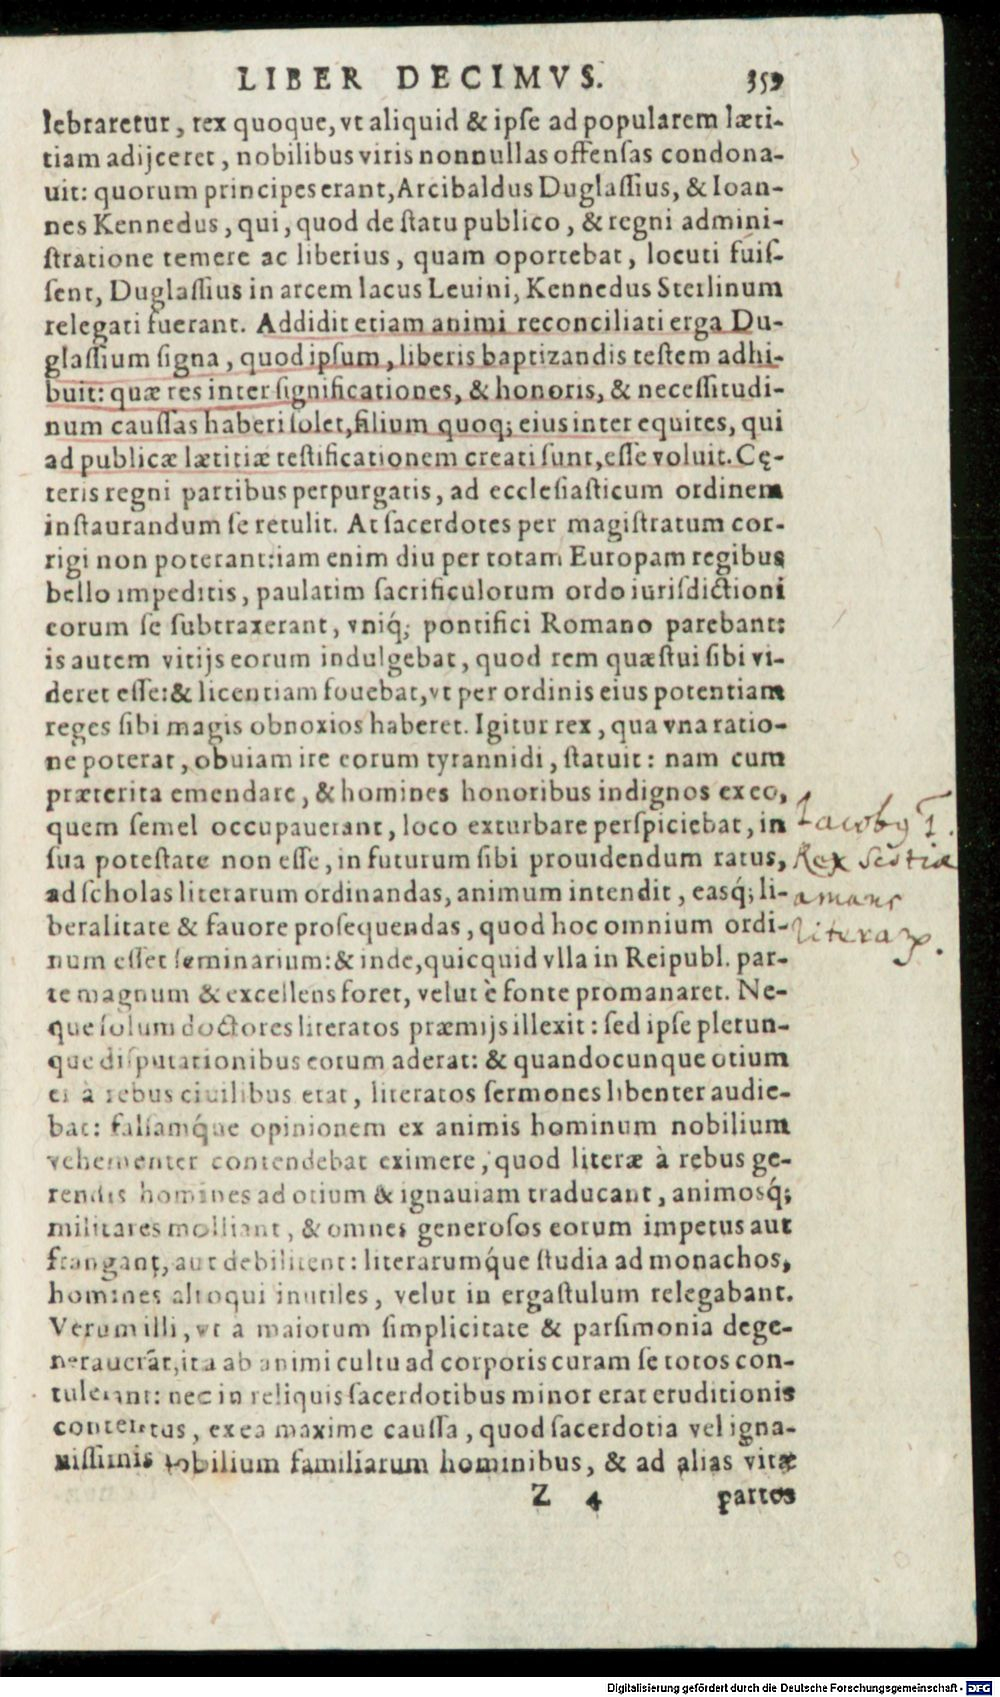 LIBER DECIMVS. 359
lebraretur, rex quoque, vt aliquid & ipse ad popularem læti-
tiam adijceret, nobilibus viris nonnullas offensas condona-
uit: quorum principes erant, Arcibaldus Duglassius, & Ioan-
nes Kennedus, qui, quod de statu publico, & regni admini-
stratione temere ac liberius, quam oportebat, locuti fuis-
sent, Duglassius in arcem lacus Leuini, Kennedus Sterlinum
relegati fuerant. Addidit etiam animi reconciliati erga Du-
glassium signa, quod ipsum, liberis baptizandis testem adhi-
buit: quæ res inter significationes, & honoris, & necessitudi-
num caussas haberi solet, filium quoq; eius inter equites, qui
ad publicæ lætitiæ testificationem creati sunt, esse voluit. Cę-
teris regni partibus perpurgatis, ad ecclesiasticum ordinem
instaurandum se retulit. At sacerdotes per magistratum cor-
rigi non poterant: iam enim diu per totam Europam regibus
bello impeditis, paulatim sacrificulorum ordo iurisdictioni
eorum se subtraxerant, vniq́; pontifici Romano parebant:
is autem vitijs eorum indulgebat, quod rem quæstui sibi vi-
deret esse: & licentiam fouebat, vt per ordinis eius potentiam
reges sibi magis obnoxios haberet. Igitur rex, qua vna ratio-
ne poterat, obuiam ire eorum tyrannidi, statuit: nam cum
præterita emendare, & homines honoribus indignos ex eo,
quem semel occupauerant, loco exturbare perspiciebat, in
sua potestate non esse, in futurum sibi prouidendum ratus,
ad scholas literarum ordinandas, animum intendit, easq́; li-
beralitate & fauore prosequendas, quod hoc omnium ordi-
num esset seminarium: & inde, quicquid vlla in Reipubl. par-
te magnum & excellens foret, velut è fonte promanaret. Ne-
que solum doctores literatos præmijs illexit: sed ipse plerun-
que disputationibus eorum aderat: & quandocunque otium
ei à rebus ciuilibus erat, literatos sermones libenter audie-
bat: falsamq́ue opinionem ex animis hominum nobilium
vehementer contendebat eximere, quod literæ à rebus ge-
rendis homines ad otium & ignauiam traducant, animosq́;
militares molliant, & omnes generosos eorum impetus aut
frangant, aut debilitent: literarumq́ue studia ad monachos,
homines alioqui inutiles, velut in ergastulum relegabant.
Verum illi, vt a maiorum simplicitate & parsimonia dege-
nerauerāt, ita ab animi cultu ad corporis curam se totos con-
tulerant: nec in reliquis sacerdotibus minor erat eruditionis
contemtus, ex ea maxime caussa, quod sacerdotia vel igna-
uissimis nobilium familiarum hominibus, & ad alias vitæ
Z 4 partes
Jacoby 1.
Rex Scotiæ
amans
literarꝝ.
Digitalisierung gefördert durch die Deutsche Forschungsgemeinschaft - DFG